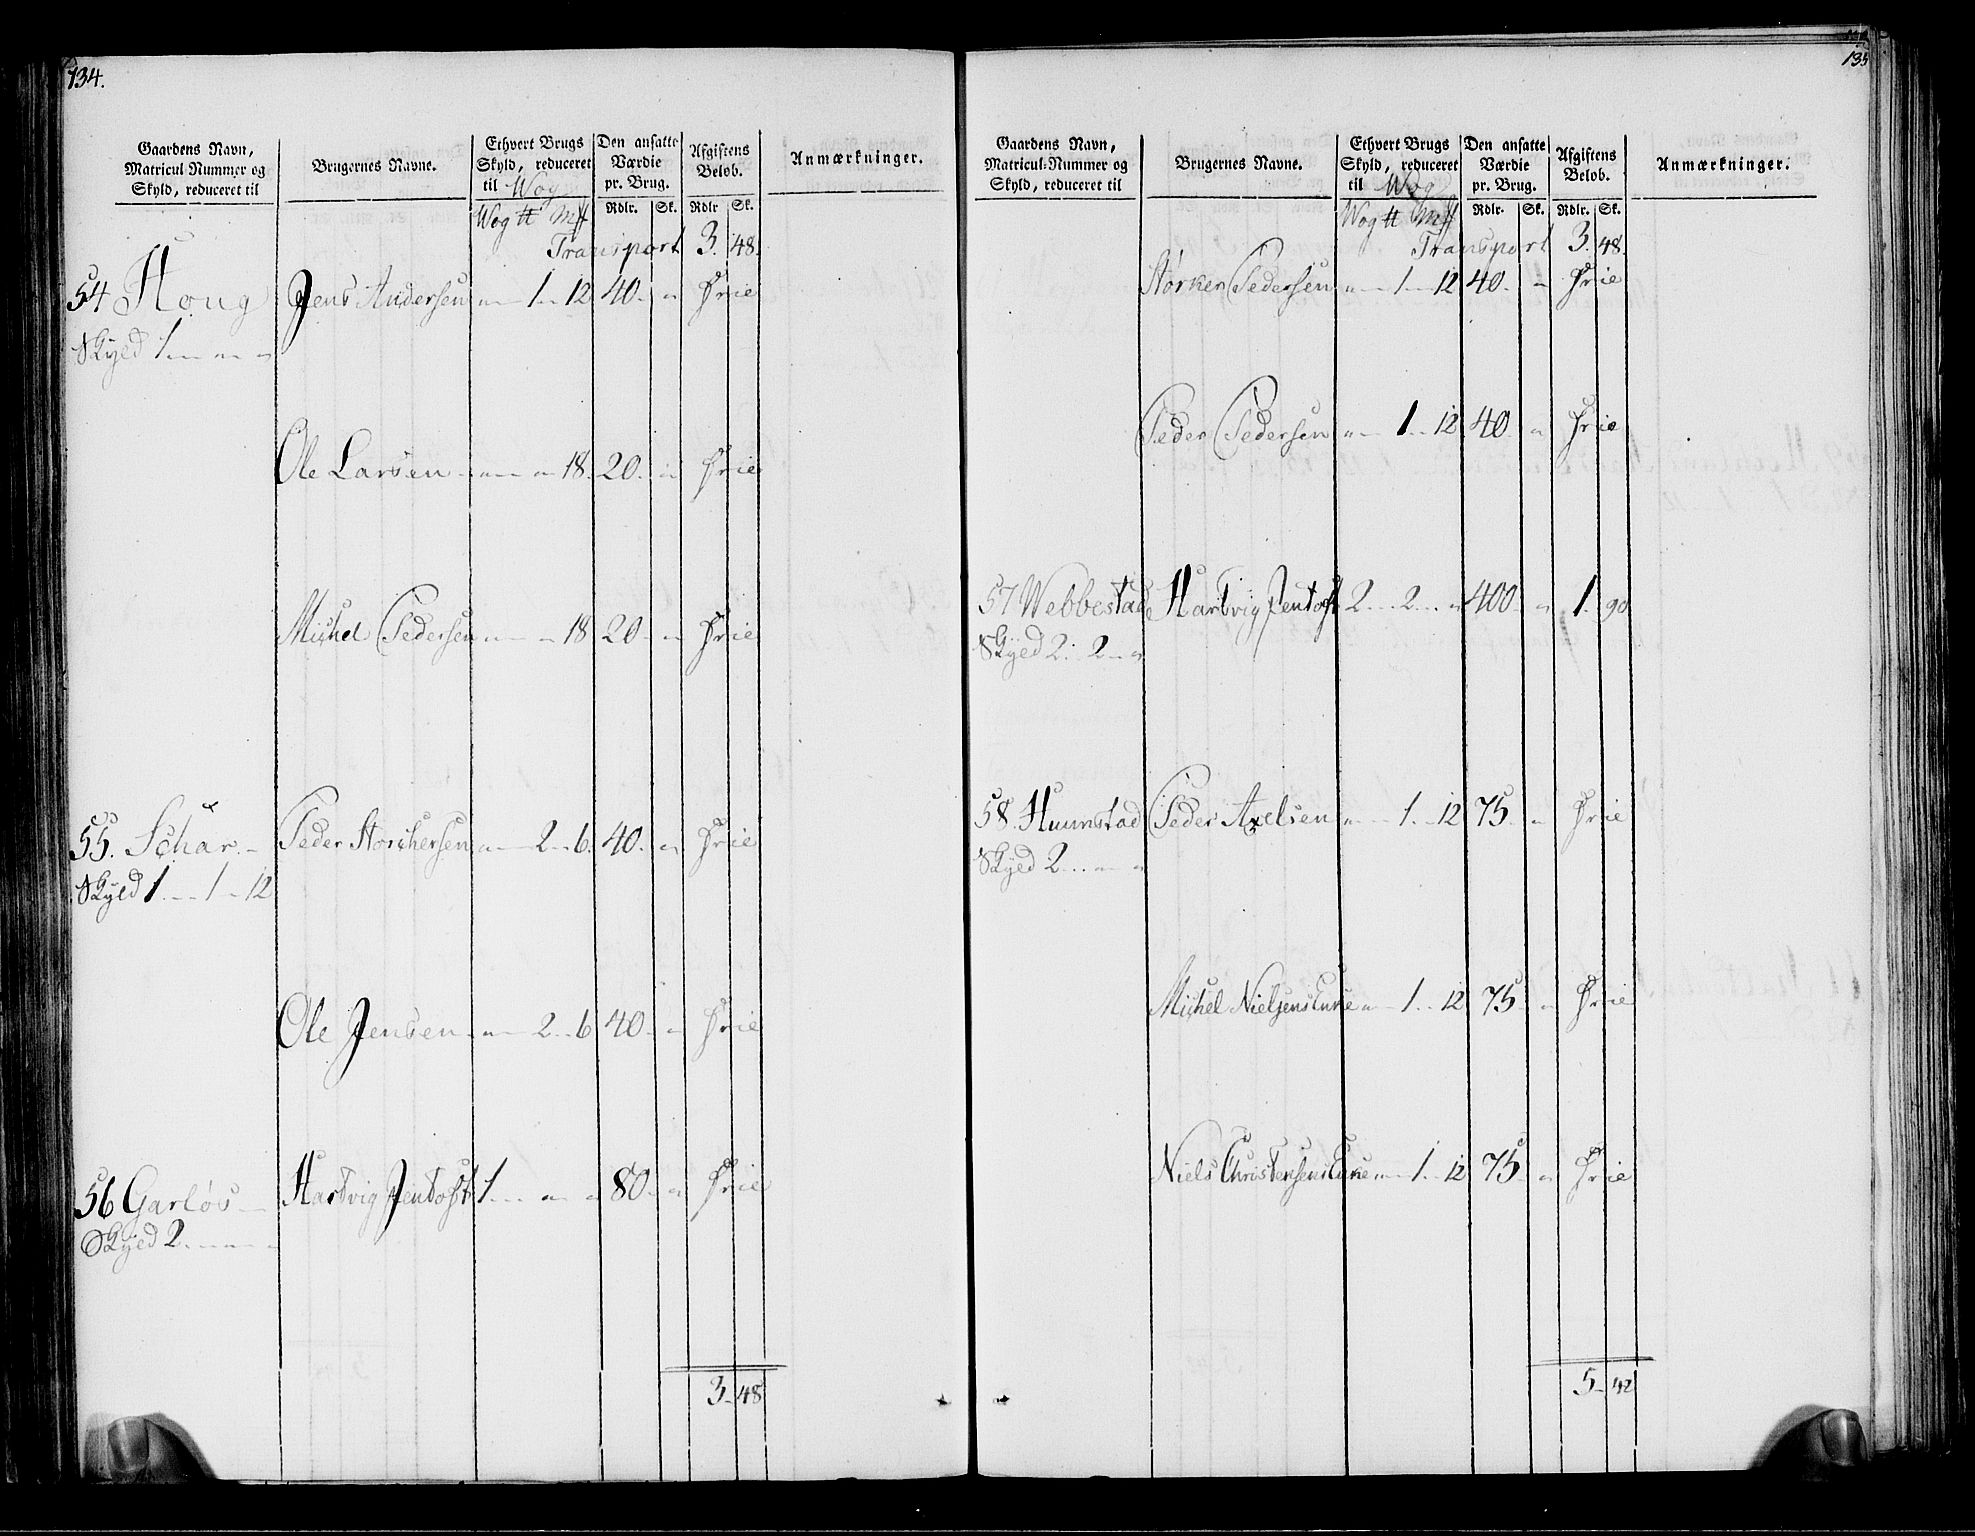 134.
Gaardens Navn, Matricul Nummer og Skyld, reduceret til
Brugernes Navne.
Ethvert Brugs Skyld, reduceret til Wog
Den ansatte Værdie pr. Brug.
Afgiftens Beløb.
Anmærkninger.
Wog ℔ Mk Rdlr. Sk. Rdlr Sk.
Transport 3. 48.
54 Houg Jens Andersen " 1 " 12 40 " Frie
Skyld 1 " "
Ole Larsen " " 18. 20 " Frie
Michel Pedersen " " 18 20 " Frie
55. Schar Peder Storchersen " 2 " 6. 40 " Frie
Skyld 1 " 1 " 12
Ole Jensen " 2 " 6 40 " Frie
56 Garløs Hartvig Jentoft 1 " " 80 " Frie
Skyld 2 " "
3 48
135
Gaardens Navn, Matricul-Nummer og Skyld, reduceret til
Brugernes Navne.
Ethvert Brugs Skyld, reduceret til Wog
Den ansatte Værdie pr. Brug.
Afgiftens Beløb.
Anmærkninger.
Wog ℔ Mk Rdlr. Sk. Rdlr. Sk.
Transport 3. 48
Størker Pedersen " 1 " 12 40 " Frie
Peder Pedersen " 1 " 12 40 " Frie
57 Webbestad Hartvig Jentoft 2 " 2 " 400 " 1 90
Skyld 2 " 2 "
58. Hunnstad Peder Axelsen " 1 " 12 75 " Frie
Skyld 2 " "
Michel Nielsens Enke " 1 " 12 75 " Frie
Niels Christensens Enke " 1 " 12 75 " Frie
5 42